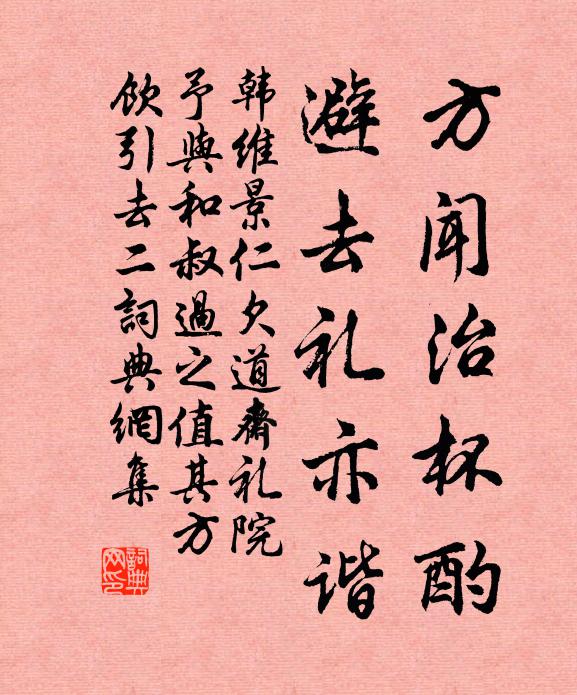 方闻治杯酌
避去礼亦谐
韩维景仁夕道斋礼院
予与和叔過之值其方
饮引去二詞典網集
詞典网印